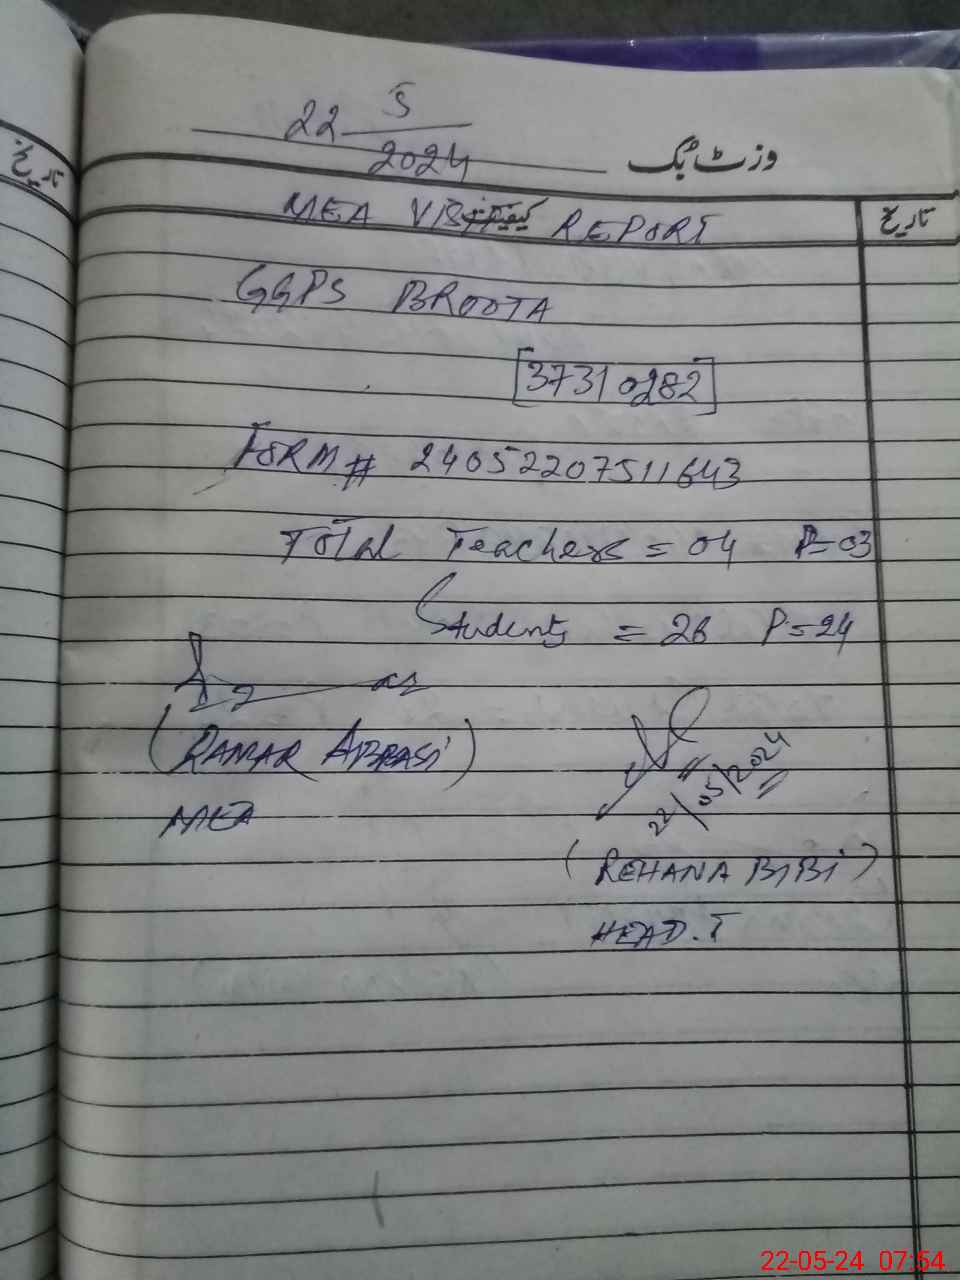 تاریخ
22 5/2024
وزٹ بک
MEA VISIT کیفیت REPORT
تاریخ
GGPS BROOTA
[37310282]
FORM # 24052207511643
Total Teachers = 04 P=03
Students = 26 P=24
(QAMAR ABBASI)
MEA
22/05/2024
(REHANA BIBI)
HEAD.T
22-05-24 07:54